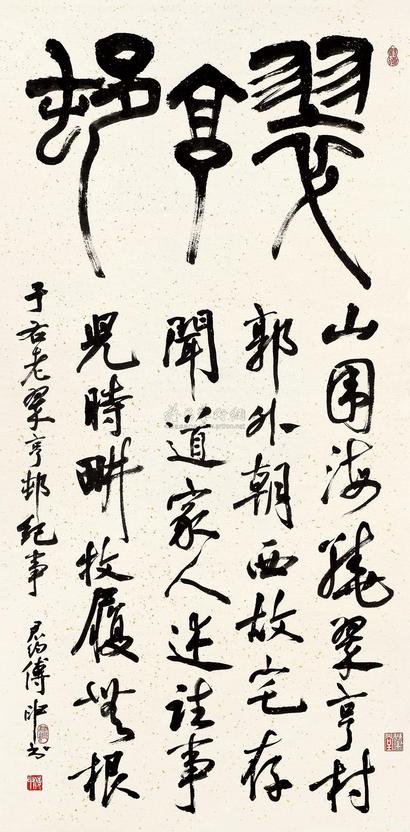 翠亨邨
山圍海繞翠亨村
郭外朝西故宅存
聞道家人述往事
兒時畊牧履無根
于右老翠亨邨紀事 君約傅申書